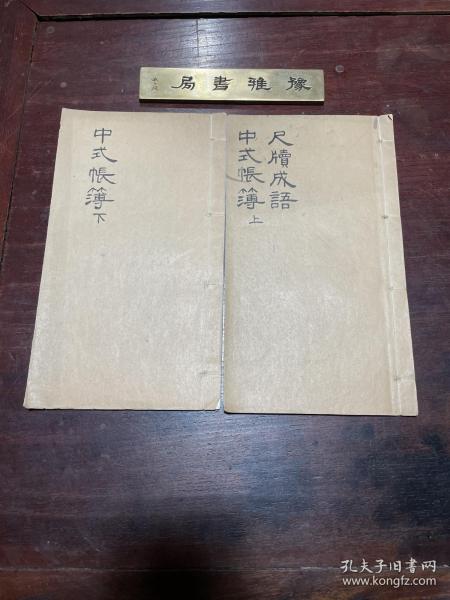 豫雅書局
尺牘成語
中式帳簿上
中式帳簿下
孔夫子旧书网
www.kongfz.com